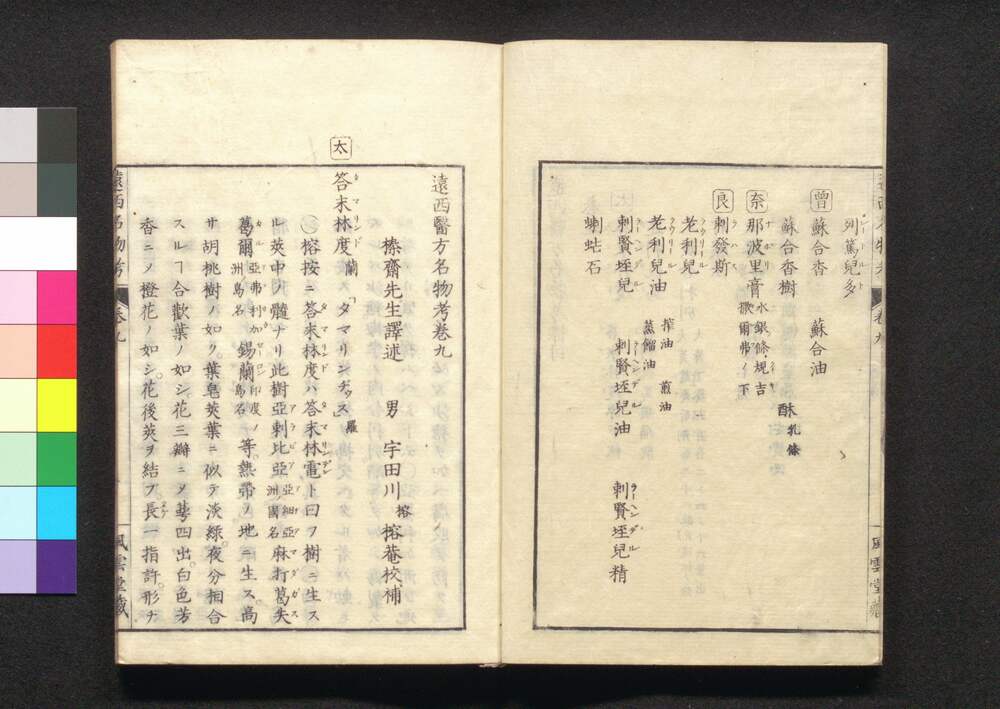 列篤兒多
曾 蘇合香 蘇合油
蘇合香樹 酥乳條
奈 那波里膏 水銀條規吉
歇爾弗ノ下
良 剌發斯
老利兒
老利兒油 搾油 煎油
蒸餾油
剌賢垤兒 剌賢垤兒油 剌賢垤兒精
蝲蛄石
風雲堂藏
遠西醫方名物考卷九
榛齋先生譯述 男 宇田川榕 榕菴校補
太 答末林度 蘭「タマリンデッス」羅
榕按ニ答末林度ハ答末林電ト曰フ樹ニ生ス
ル莢中ノ髓ナリ此樹亞剌比亞 亞細亞洲ノ國名 麻打葛失
葛爾 亞弗利加洲島名 錫蘭 印度ノ島名 等熱帶ノ地ニ生ス。高
サ胡桃樹ノ如ク。葉皂莢葉ニ似テ淡綠。夜分相合
スルヿ合歡葉ノ如シ。花三瓣ニメ萼四出。白色芳
香ニメ橙花ノ如シ。花後莢ヲ結フ。長一指許。形チ
遠西名物考 卷九
風雲堂藏